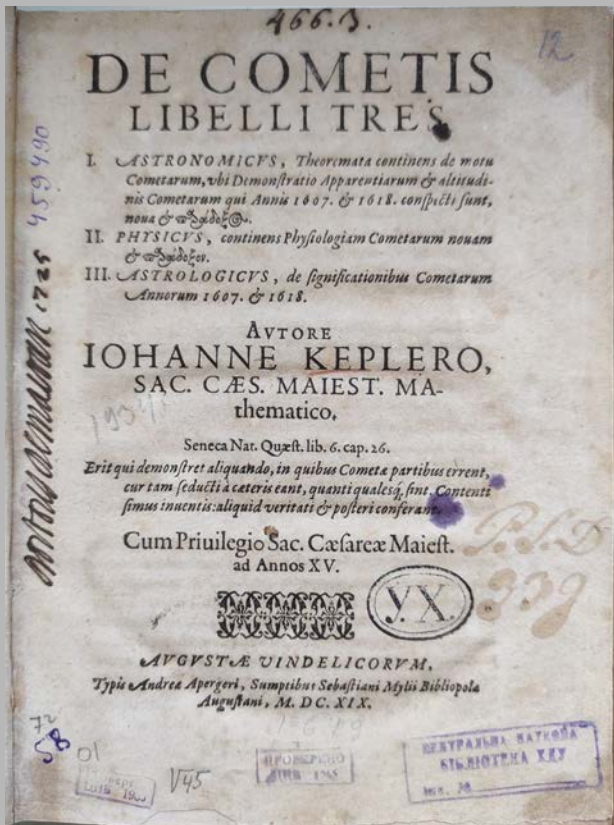 466.3.
12
DE COMETIS
LIBELLI TRES
I. ASTRONOMICVS, Theoremata continens de motu
Cometarum, vbi Demonſtratio Apparentiarum & altitudi-
nis Cometarum qui Annis 1607. & 1618. conſpicti ſunt,
noua &
II. PHYSICVS, continens Phyſiologiam Cometarum nouam
&
III. ASTROLOGICVS, de ſignificationibus Cometarum
Annorum 1607. & 1618.
AVTORE
IOHANNE KEPLERO,
SAC. CÆS. MAIEST. MA-
thematico.
Seneca Nat. Quæſt. lib. 6. cap. 26.
Erit qui demonſtret aliquando, in quibus Cometæ partibus errent,
cur tam ſeducti à cæteris eant, quanti qualesq́, ſint. Contenti
ſimus inuentis: aliquid veritati & poſteri conferant.
Cum Priuilegio Sac. Cæſareæ Maieſt.
ad Annos XV.
У.Х.
P.S.D
339
AVGVSTÆ VINDELICORVM,
Typis Andreæ Apergeri, Sumptibus Sebaſtiani Mylii Bibliopolæ
Auguſtani, M. DC. XIX.
1725 459490
72
58
01
V45
ПРОВЕРЕНО
ЦНБ 1965
ЦЕНТРАЛЬНА НАУКОВА
БІБЛІОТЕКА ХДУ
інв. №